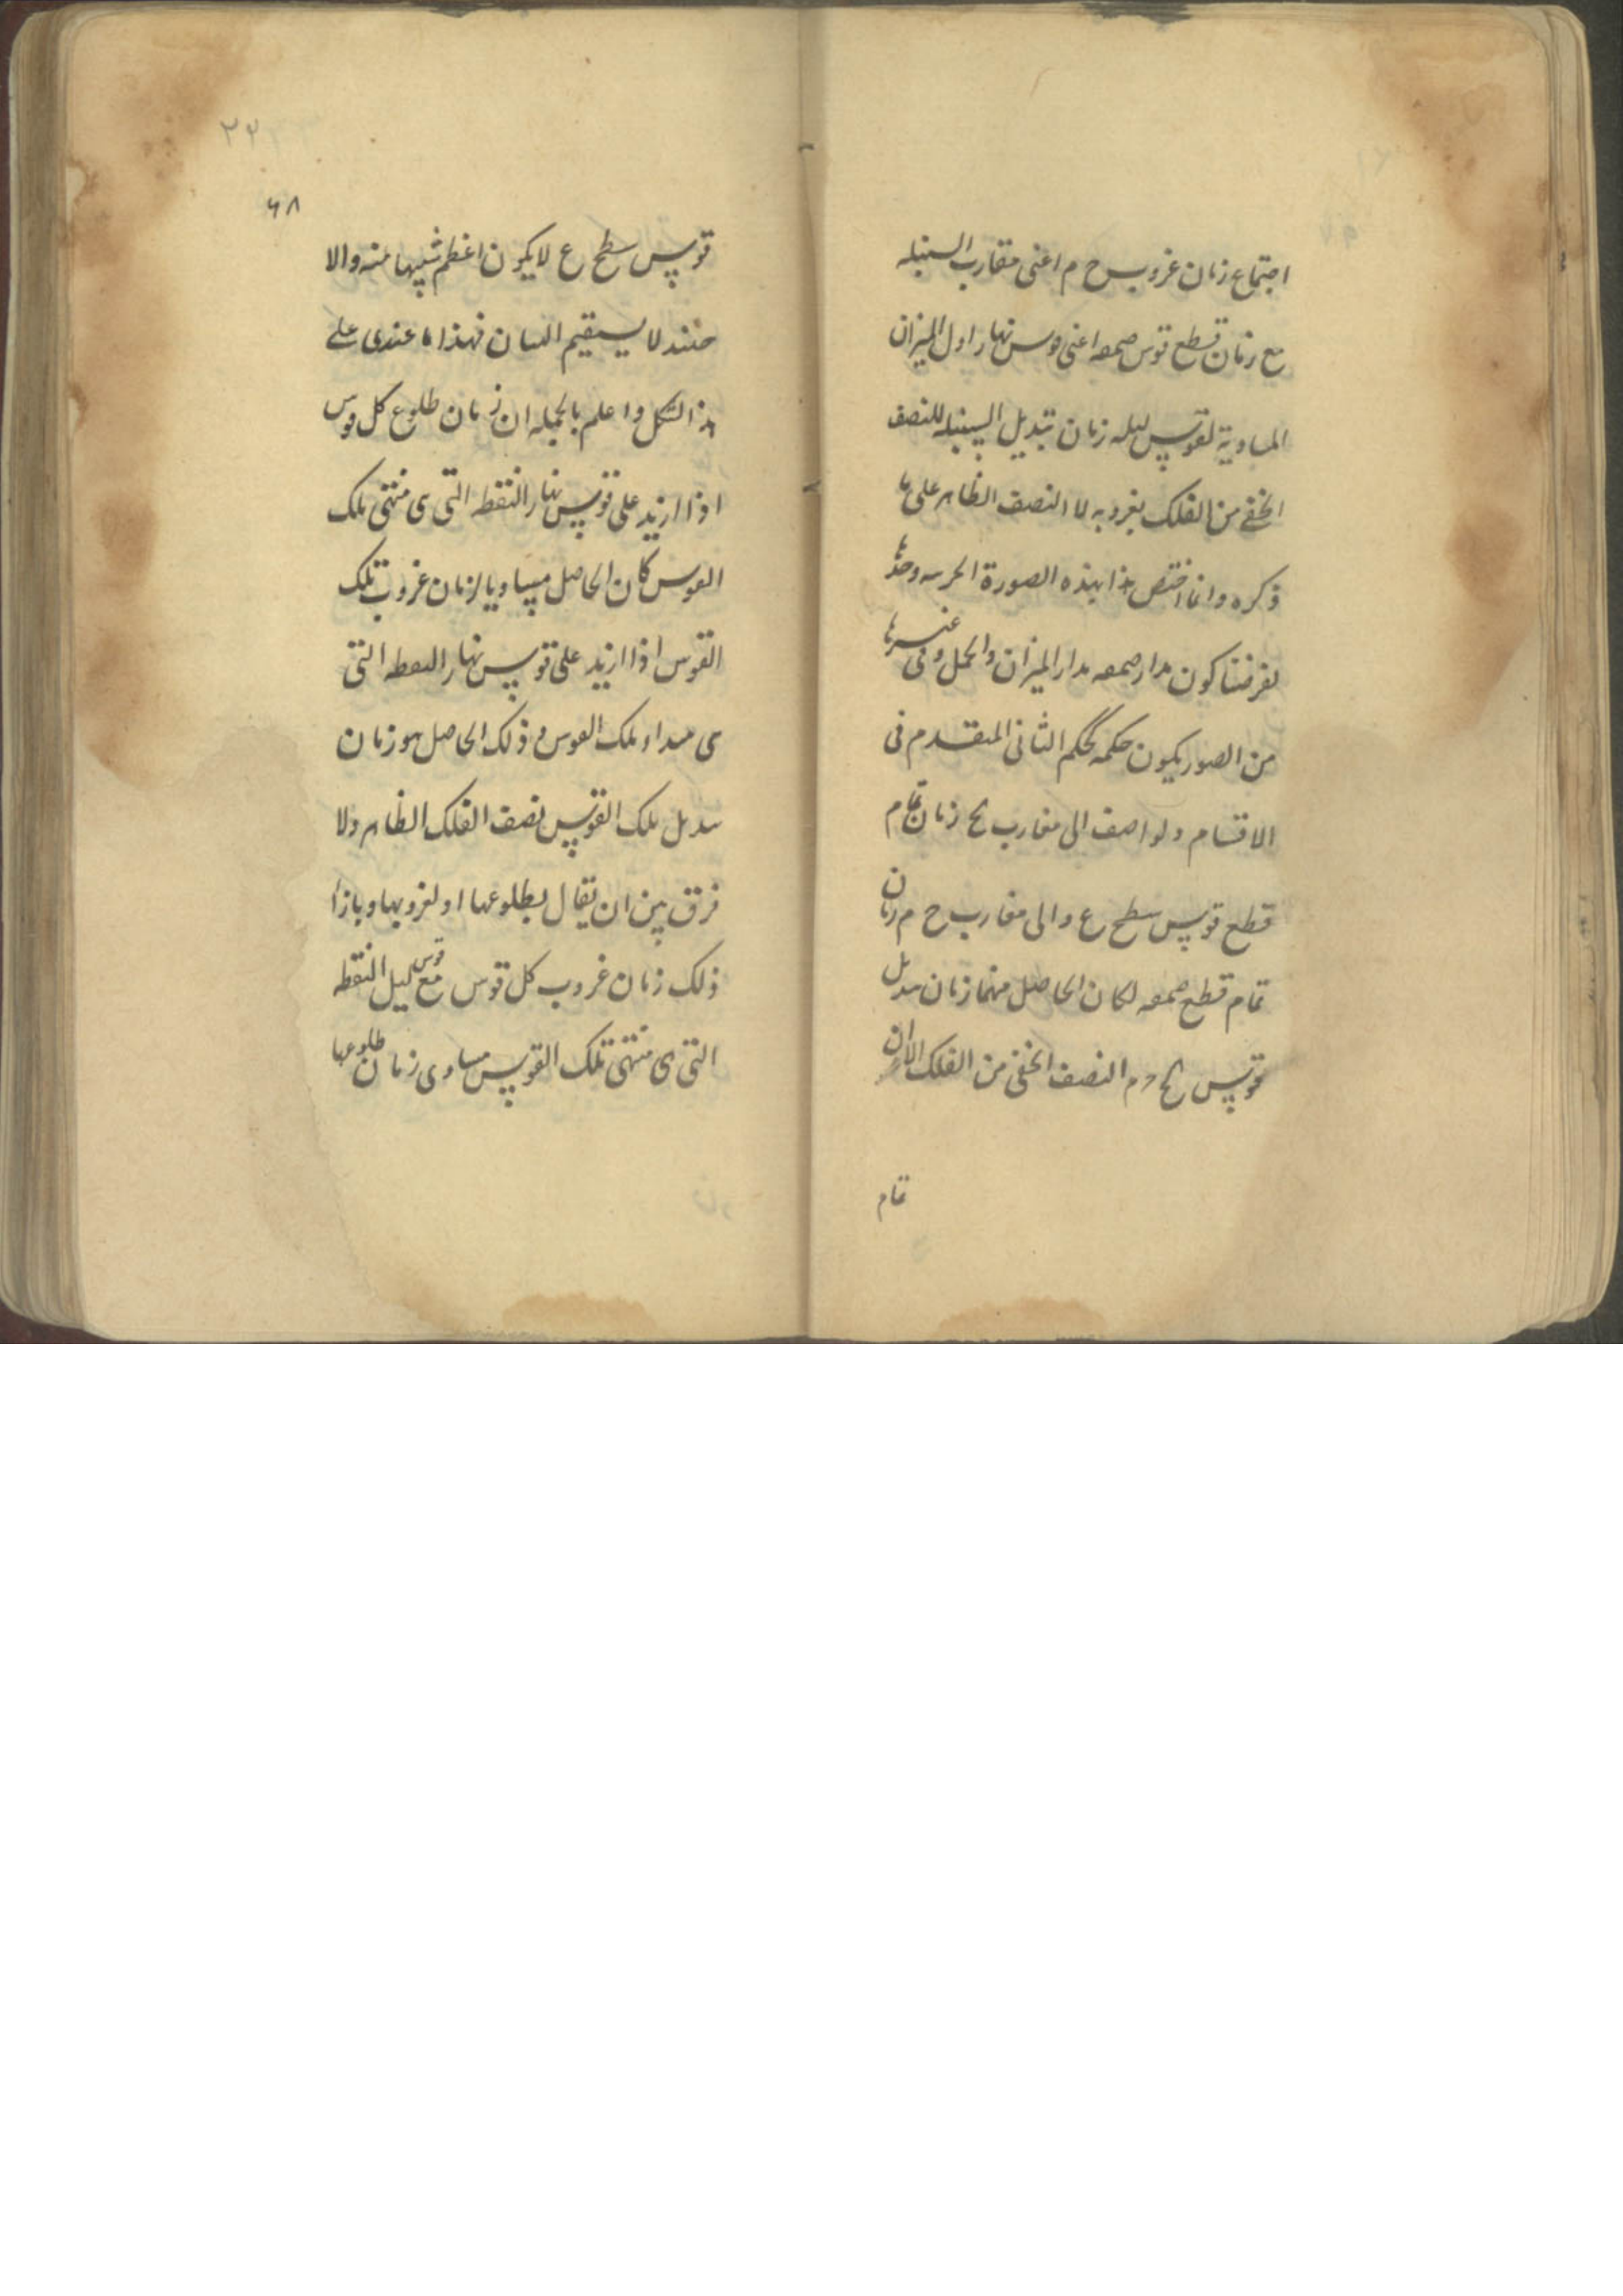 اجتماع زمان غروب ح م اعنى مغارب السنبله
مع زمان قطع قوس صمعه اعنى قوس نهار اول الميزان
المساوية لقوس ليله زمان تبديل السنبله للنصف
الخفى من الفلك بغروبه لا النصف الظاهر على ما
ذكره وانما اختص هذا بهذه الصورة وحدها
لفرضنا كون مدار صمعه مدار الميزان والحمل وفى غيرها
من الصور يكون حكمه كحكم الثانى المتقدم فى
الاقسام ولو اضيف الى مغارب لح زمان تمام
قطع قوس سطح ع والى مغارب ح م زمان
تمام قطع صمعه لكان الحاصل منهما زمان تبديل
قوس لح ح م النصف الخفى من الفلك الا ان
تمام
٣٢
٦٨
قوس سطح ع لا يكون اعظم شبيها منه والا
حينئذ لا يستقيم البيان فهذا ما عندى على
هذا الشكل واعلم بالجمله ان زمان طلوع كل قوس
اذا ازيد على قوس نهار النقطه التى هى منتهى تلك
القوس كان الحاصل مساويا لزمان غروب تلك
القوس اذا ازيد على قوس نهار النقطه التى
هى مبداء تلك القوس و ذلك الحاصل هو زمان
تبديل تلك القوس نصف الفلك الظاهر ولا
فرق بين ان يقال بطلوعها او لغروبها وبازا
ذلك زمان غروب كل قوس مع قوس ليل النقطه
التى هى منتهى تلك القوس مساوى زمان طلوعها